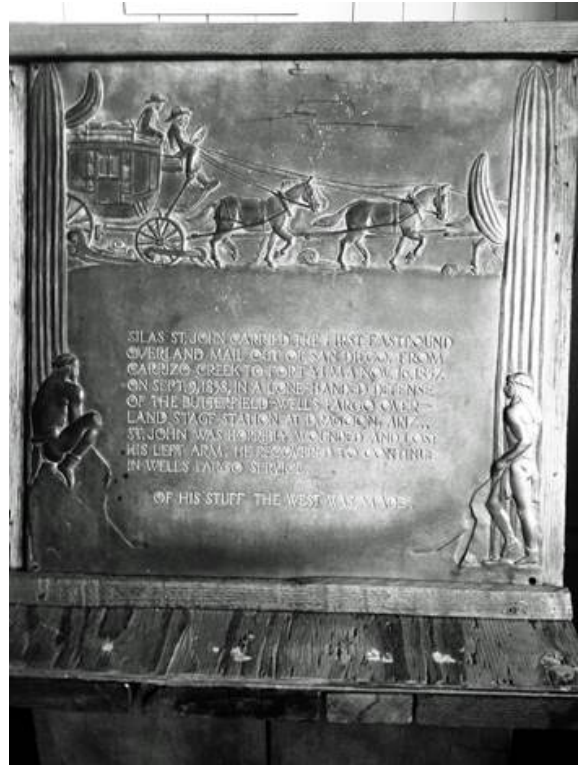 SILAS ST. JOHN CARRIED THE FIRST EASTBOUND
OVERLAND MAIL OUT OF SAN DIEGO, FROM
CARRIZO CREEK TO FORT YUMA NOV. 16, 1857.
ON SEPT. 9, 1858, IN A LONE-HANDED DEFENSE
OF THE BUTTERFIELD-WELLS FARGO OVER-
LAND STAGE STATION AT DRAGOON, ARIZ...
ST. JOHN WAS HORRIBLY WOUNDED AND LOST
HIS LEFT ARM. HE RECOVERED TO CONTINUE
IN WELLS FARGO SERVICE.
OF HIS STUFF THE WEST WAS MADE.